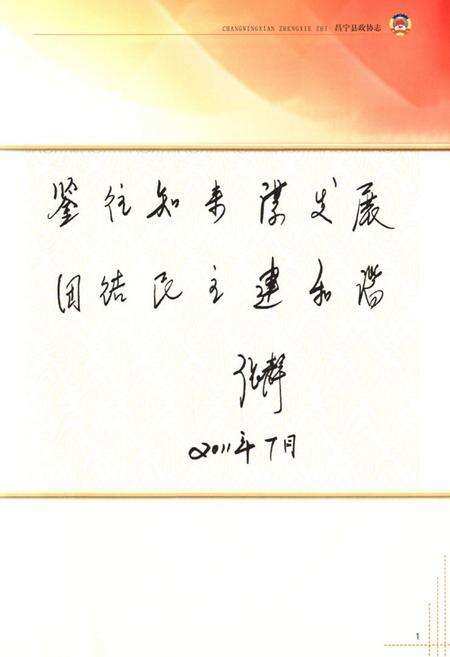 CHANGNINGXIAN ZHENGXIE ZHI 昌宁县政协志
鉴往知来谋发展
团结民主建和谐
2011年7月
1